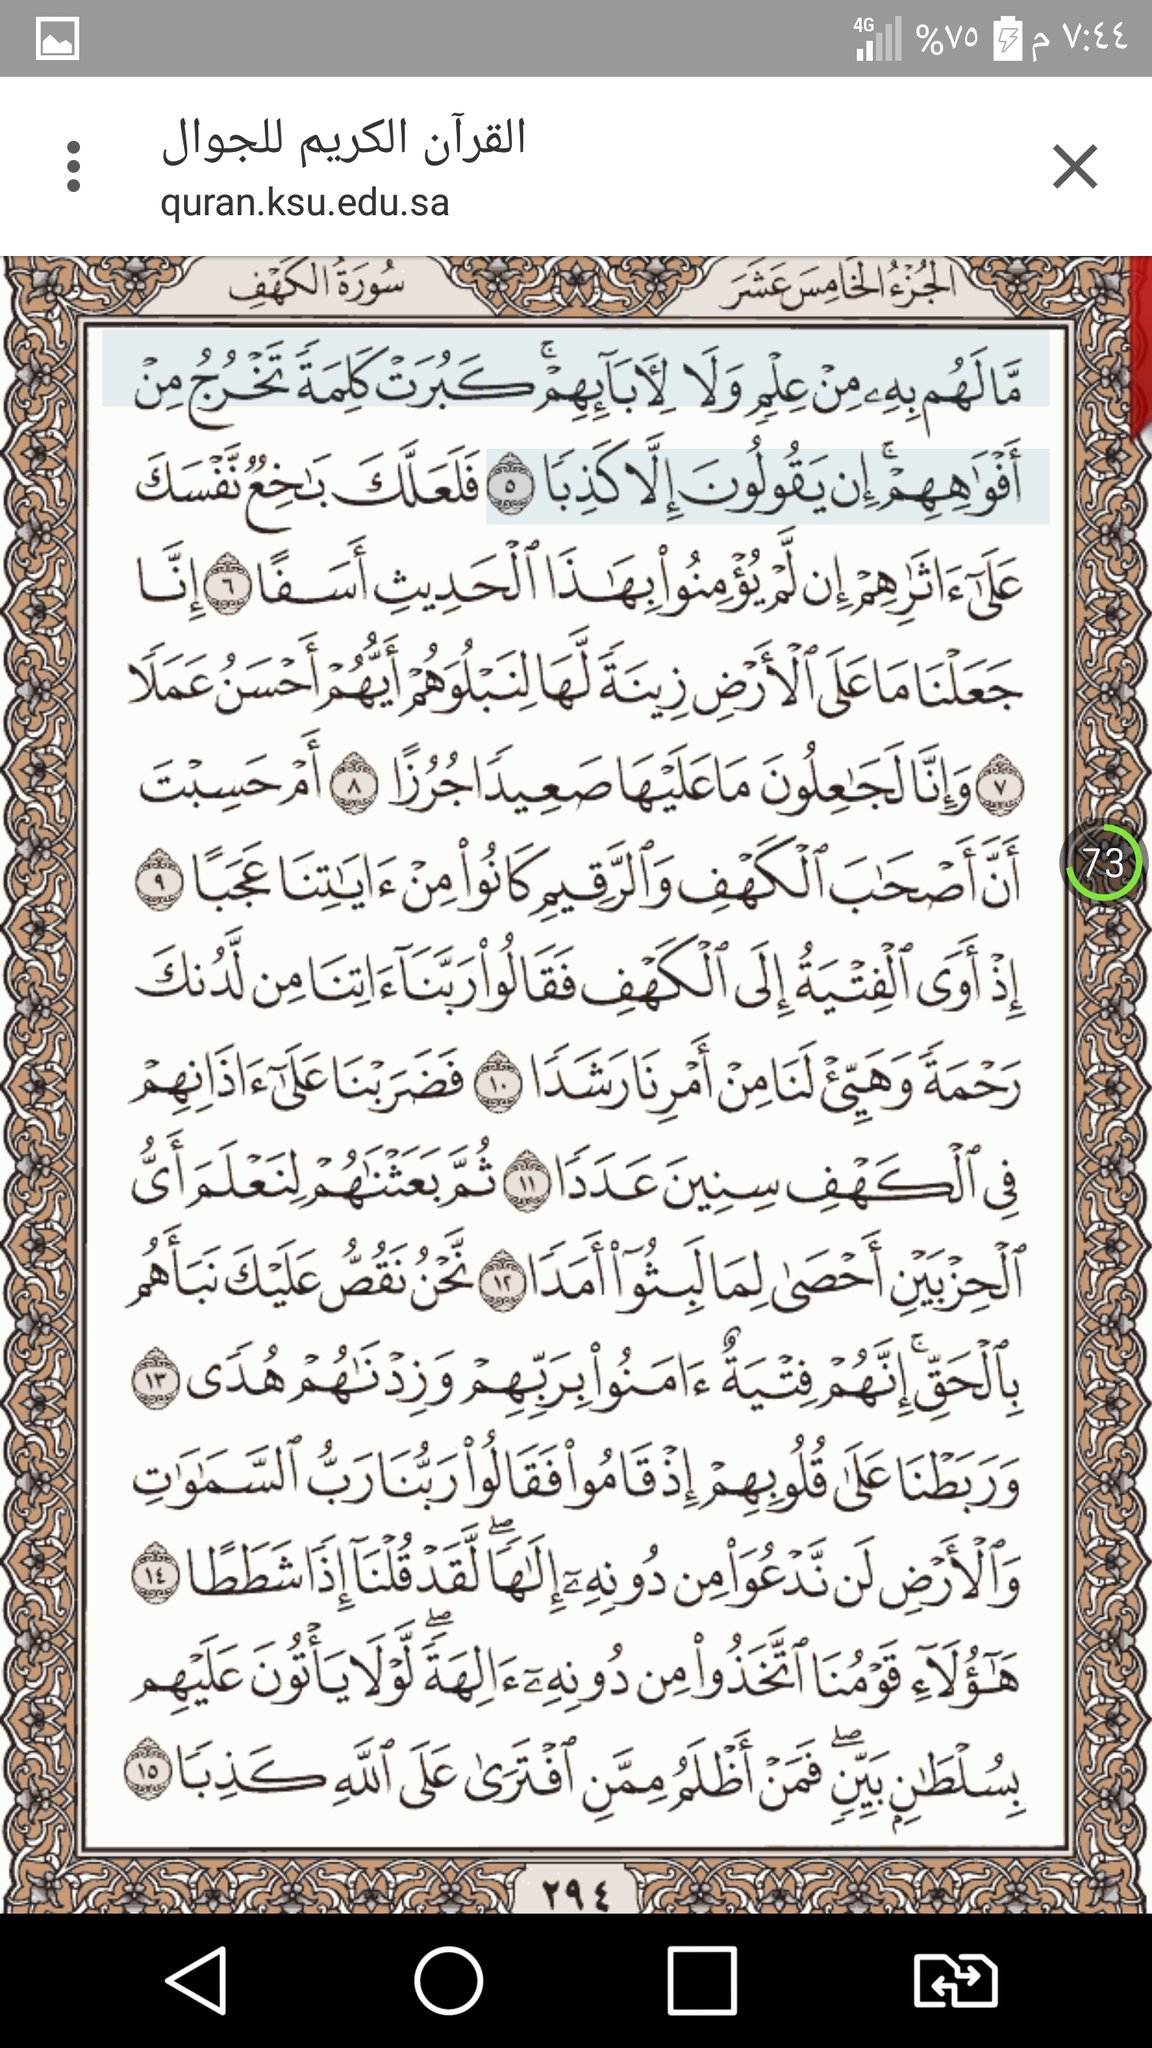 ٧:٤٤ م ٧٥% 4G
القرآن الكريم للجوال
quran.ksu.edu.sa
الجُزْءُ الخَامِسَ عَشَرَ
سُورَةُ الكَهْفِ
مَّا لَهُم بِهِۦ مِنْ عِلْمٍ وَلَا لِأَبَآئِهِمْ ۚ كَبُرَتْ كَلِمَةً تَخْرُجُ مِنْ
أَفْوَٰهِهِمْ ۚ إِن يَقُولُونَ إِلَّا كَذِبًا ٥ فَلَعَلَّكَ بَـٰخِعٌ نَّفْسَكَ
عَلَىٰٓ ءَاثَـٰرِهِمْ إِن لَّمْ يُؤْمِنُوا۟ بِهَـٰذَا ٱلْحَدِيثِ أَسَفًا ٦ إِنَّا
جَعَلْنَا مَا عَلَى ٱلْأَرْضِ زِينَةً لَّهَا لِنَبْلُوَهُمْ أَيُّهُمْ أَحْسَنُ عَمَلًا
٧ وَإِنَّا لَجَـٰعِلُونَ مَا عَلَيْهَا صَعِيدًا جُرُزًا ٨ أَمْ حَسِبْتَ
أَنَّ أَصْحَـٰبَ ٱلْكَهْفِ وَٱلرَّقِيمِ كَانُوا۟ مِنْ ءَايَـٰتِنَا عَجَبًا ٩
إِذْ أَوَى ٱلْفِتْيَةُ إِلَى ٱلْكَهْفِ فَقَالُوا۟ رَبَّنَآ ءَاتِنَا مِن لَّدُنكَ
رَحْمَةً وَهَيِّئْ لَنَا مِنْ أَمْرِنَا رَشَدًا ١٠ فَضَرَبْنَا عَلَىٰٓ ءَاذَانِهِمْ
فِى ٱلْكَهْفِ سِنِينَ عَدَدًا ١١ ثُمَّ بَعَثْنَـٰهُمْ لِنَعْلَمَ أَىُّ
ٱلْحِزْبَيْنِ أَحْصَىٰ لِمَا لَبِثُوٓا۟ أَمَدًا ١٢ نَّحْنُ نَقُصُّ عَلَيْكَ نَبَأَهُم
بِٱلْحَقِّ ۚ إِنَّهُمْ فِتْيَةٌ ءَامَنُوا۟ بِرَبِّهِمْ وَزِدْنَـٰهُمْ هُدًى ١٣
وَرَبَطْنَا عَلَىٰ قُلُوبِهِمْ إِذْ قَامُوا۟ فَقَالُوا۟ رَبُّنَا رَبُّ ٱلسَّمَـٰوَٰتِ
وَٱلْأَرْضِ لَن نَّدْعُوَا۟ مِن دُونِهِۦٓ إِلَـٰهًا ۖ لَّقَدْ قُلْنَآ إِذًا شَطَطًا ١٤
هَـٰٓؤُلَآءِ قَوْمُنَا ٱتَّخَذُوا۟ مِن دُونِهِۦٓ ءَالِهَةً ۖ لَّوْلَا يَأْتُونَ عَلَيْهِم
بِسُلْطَـٰنٍۭ بَيِّنٍ ۖ فَمَنْ أَظْلَمُ مِمَّنِ ٱفْتَرَىٰ عَلَى ٱللَّهِ كَذِبًا ١٥
73
٢٩٤